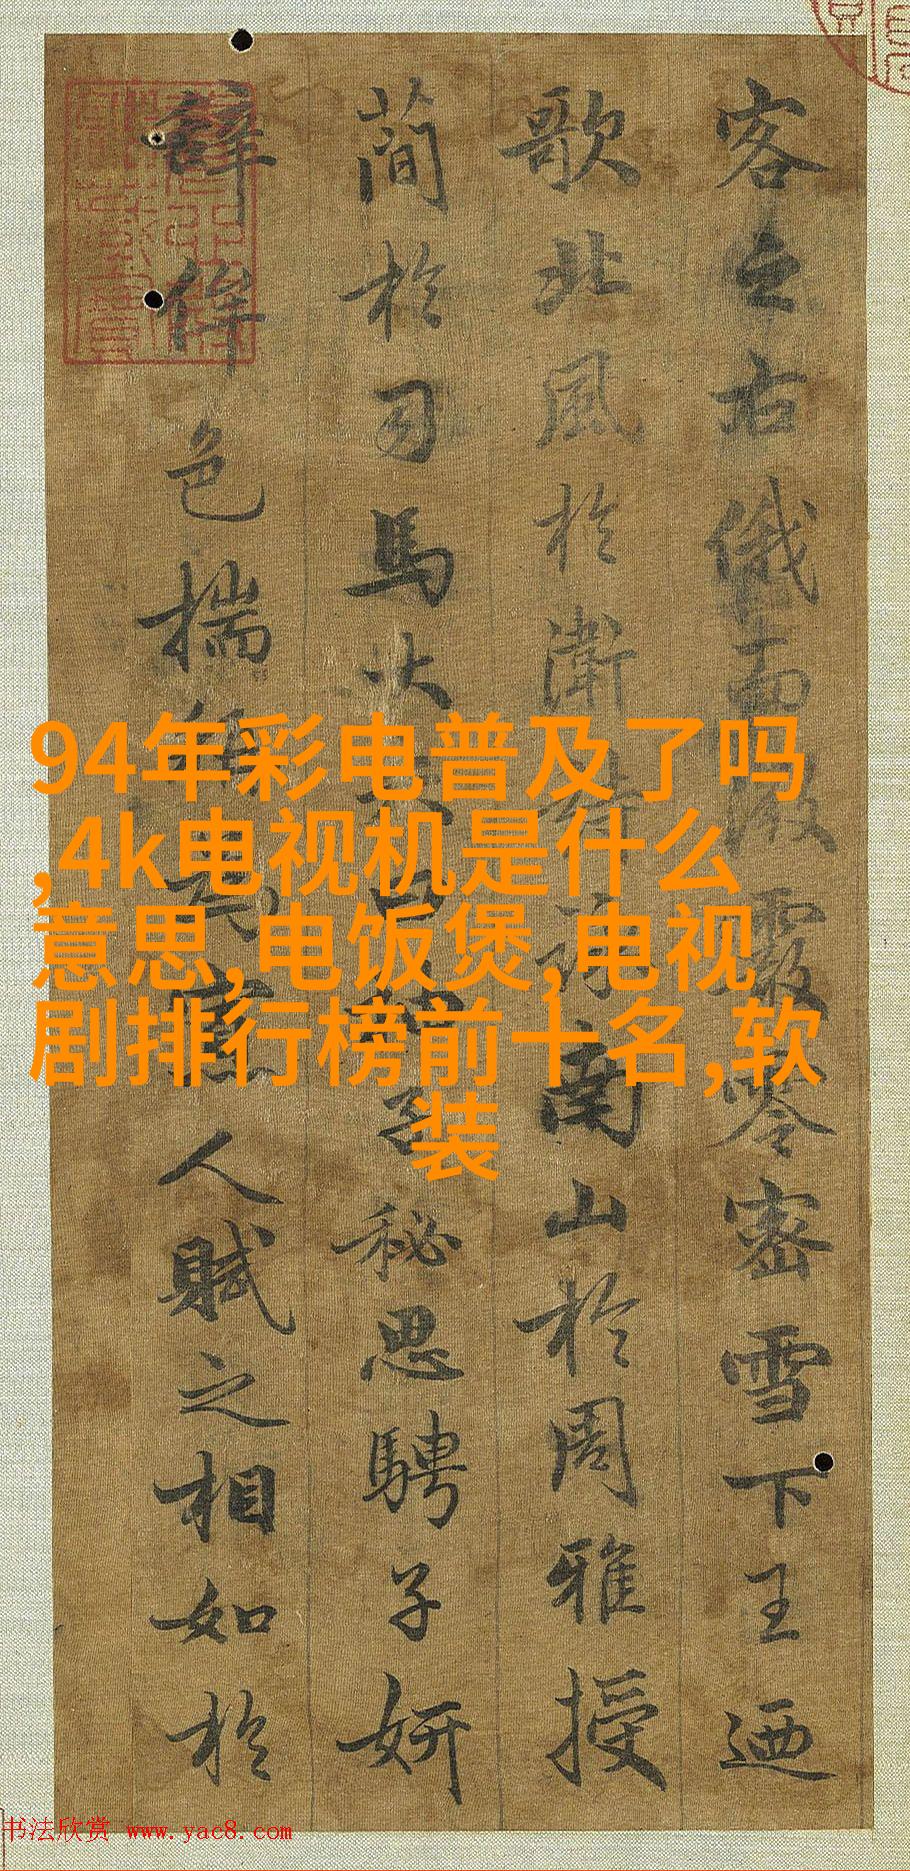 94年彩电普及了吗
,4k电视机是什么
意思,电饭煲,电视
剧排行榜前十名,软
装
客之右俄而微霰零密雪下王迺
歌北風於衛詩詠南山於周雅授
簡於司馬大子秘思騁子妍
辭侔色揣寡人賦之相如於
书法欣赏 www.yac8.com